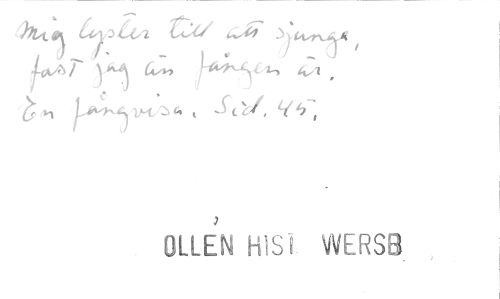 Mig lyster till att sjunga,
fast jag än fången är.
En fångvisa. Sid. 45.
OLLÉN HIST WERSB